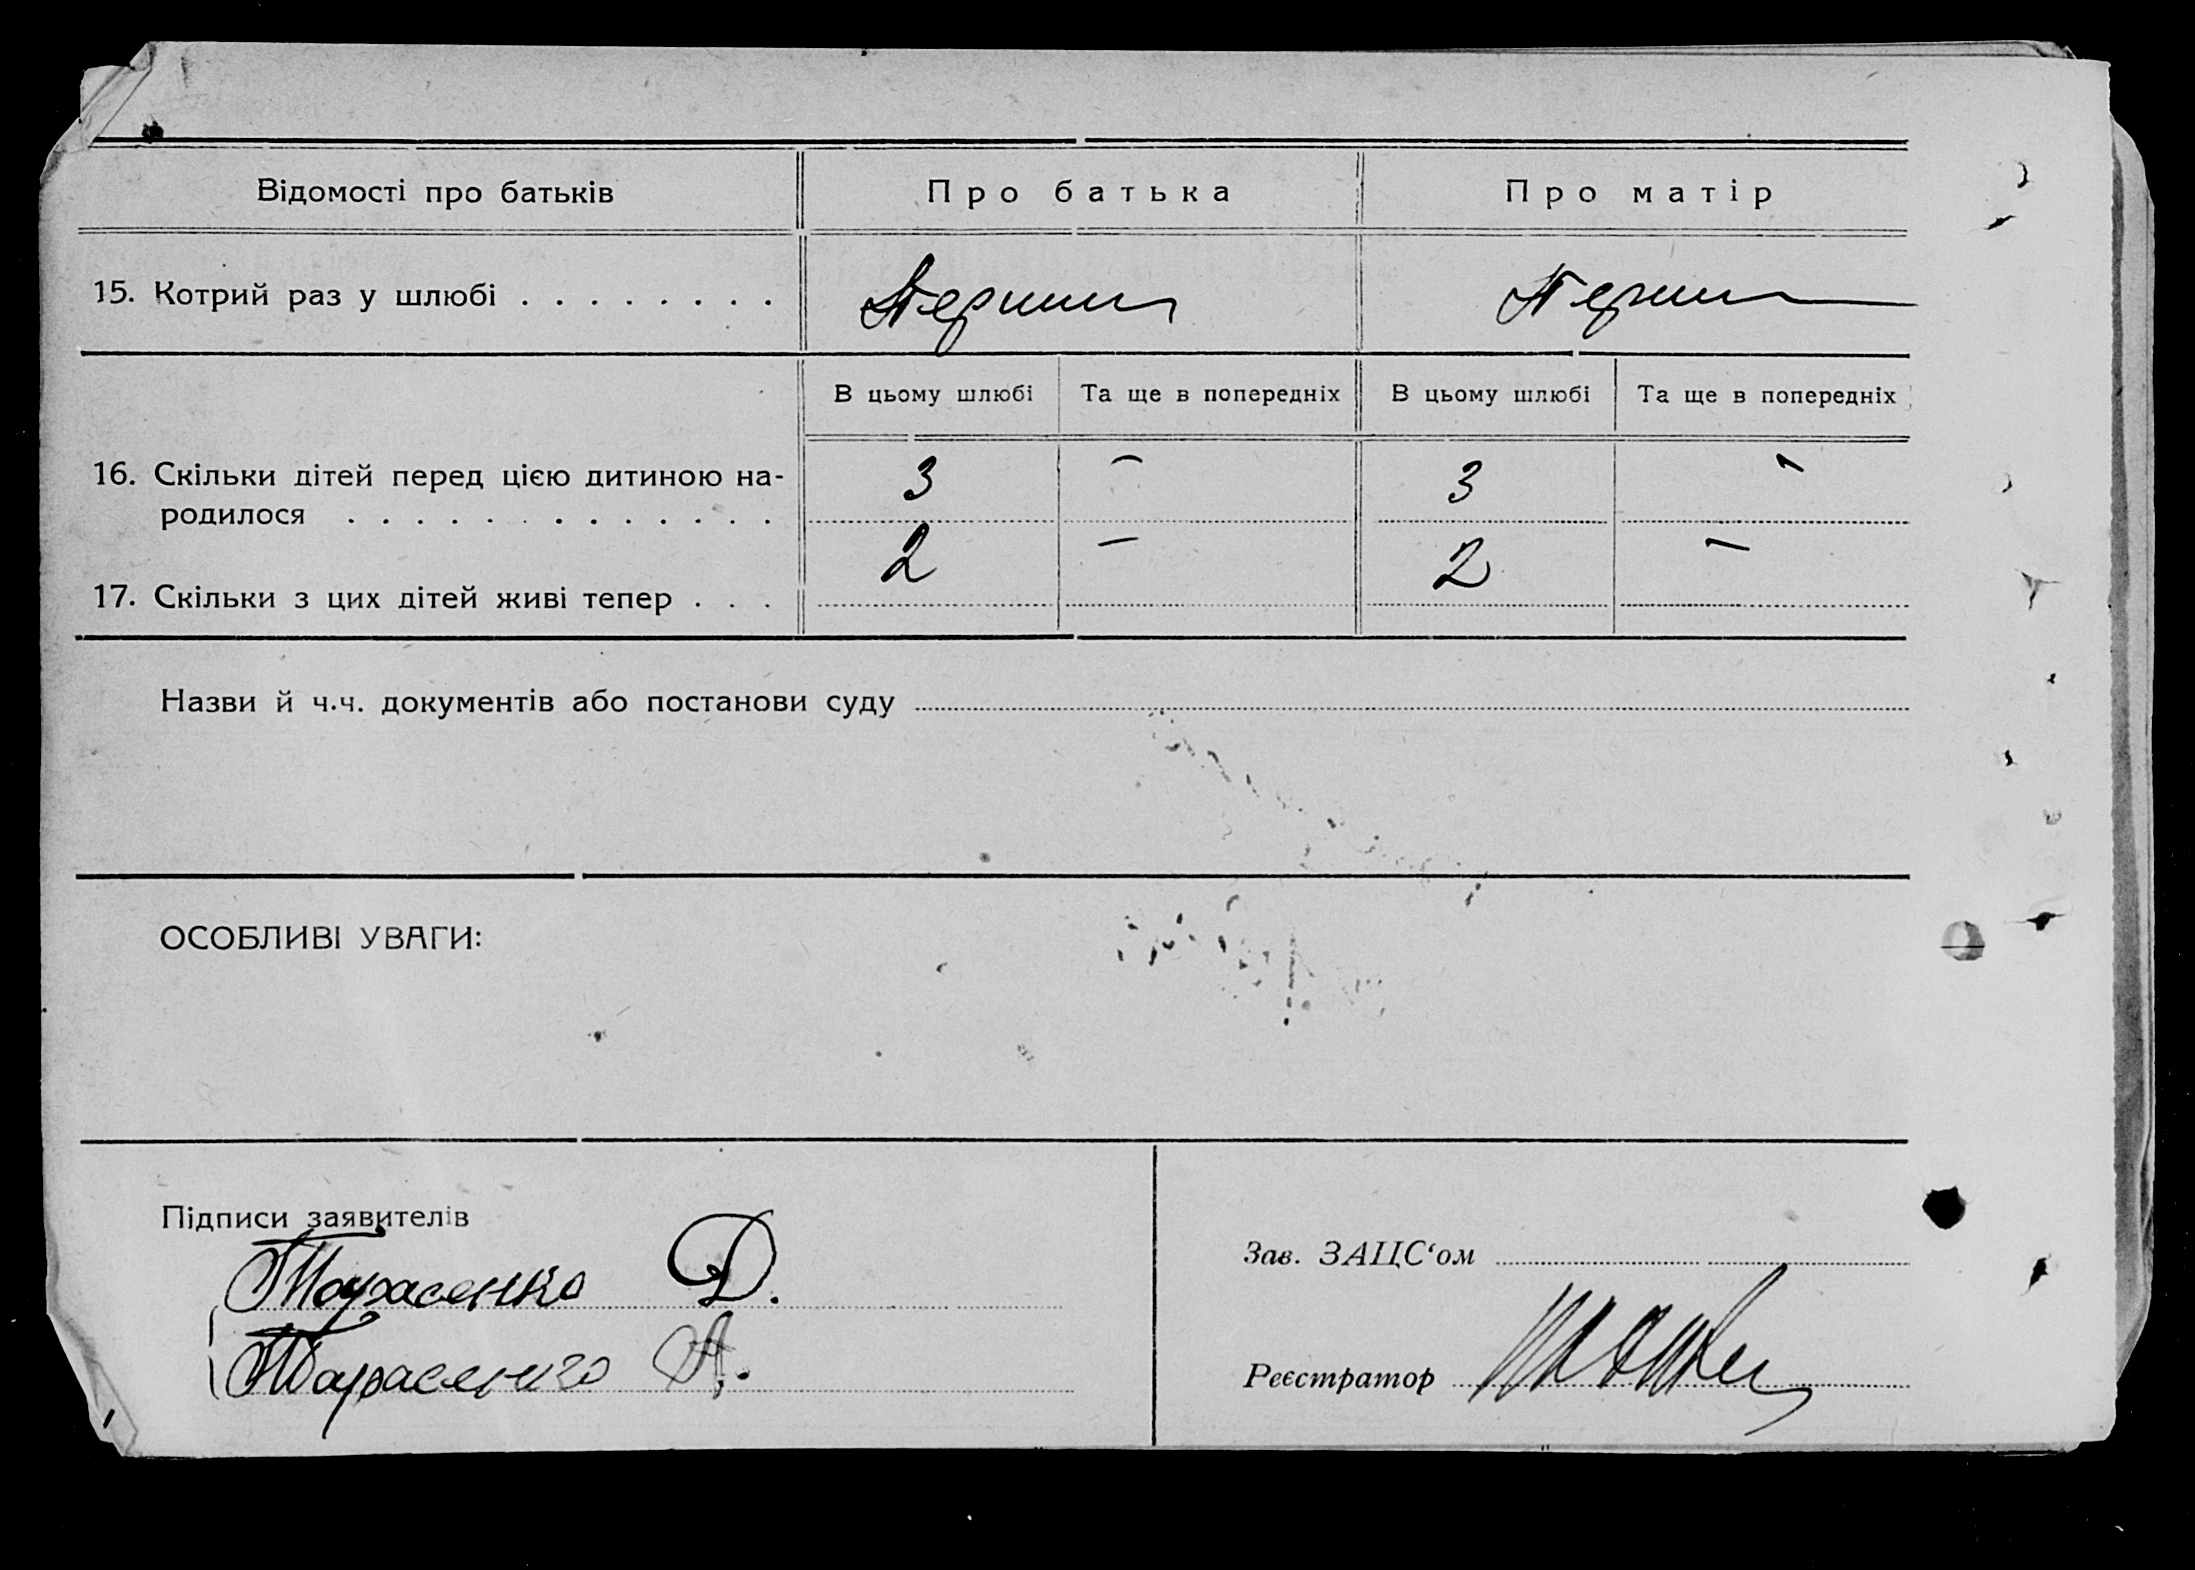 Відомості про батьків Про батька Про матір
15. Котрий раз у шлюбі . . . . . . . . Перший Перший
В цьому шлюбі Та ще в попередніх В цьому шлюбі Та ще в попередніх
16. Скільки дітей перед цією дитиною на- 3 – 3 –
родилося . . . . . . . . . . . . .
17. Скільки з цих дітей живі тепер . . . 2 – 2 –
Назви й ч.ч. документів або постанови суду
ОСОБЛИВІ УВАГИ:
Підписи заявителів
Тарасенко Д.
Тарасенко А.
Зав. ЗАЦС‘ом
Реєстратор